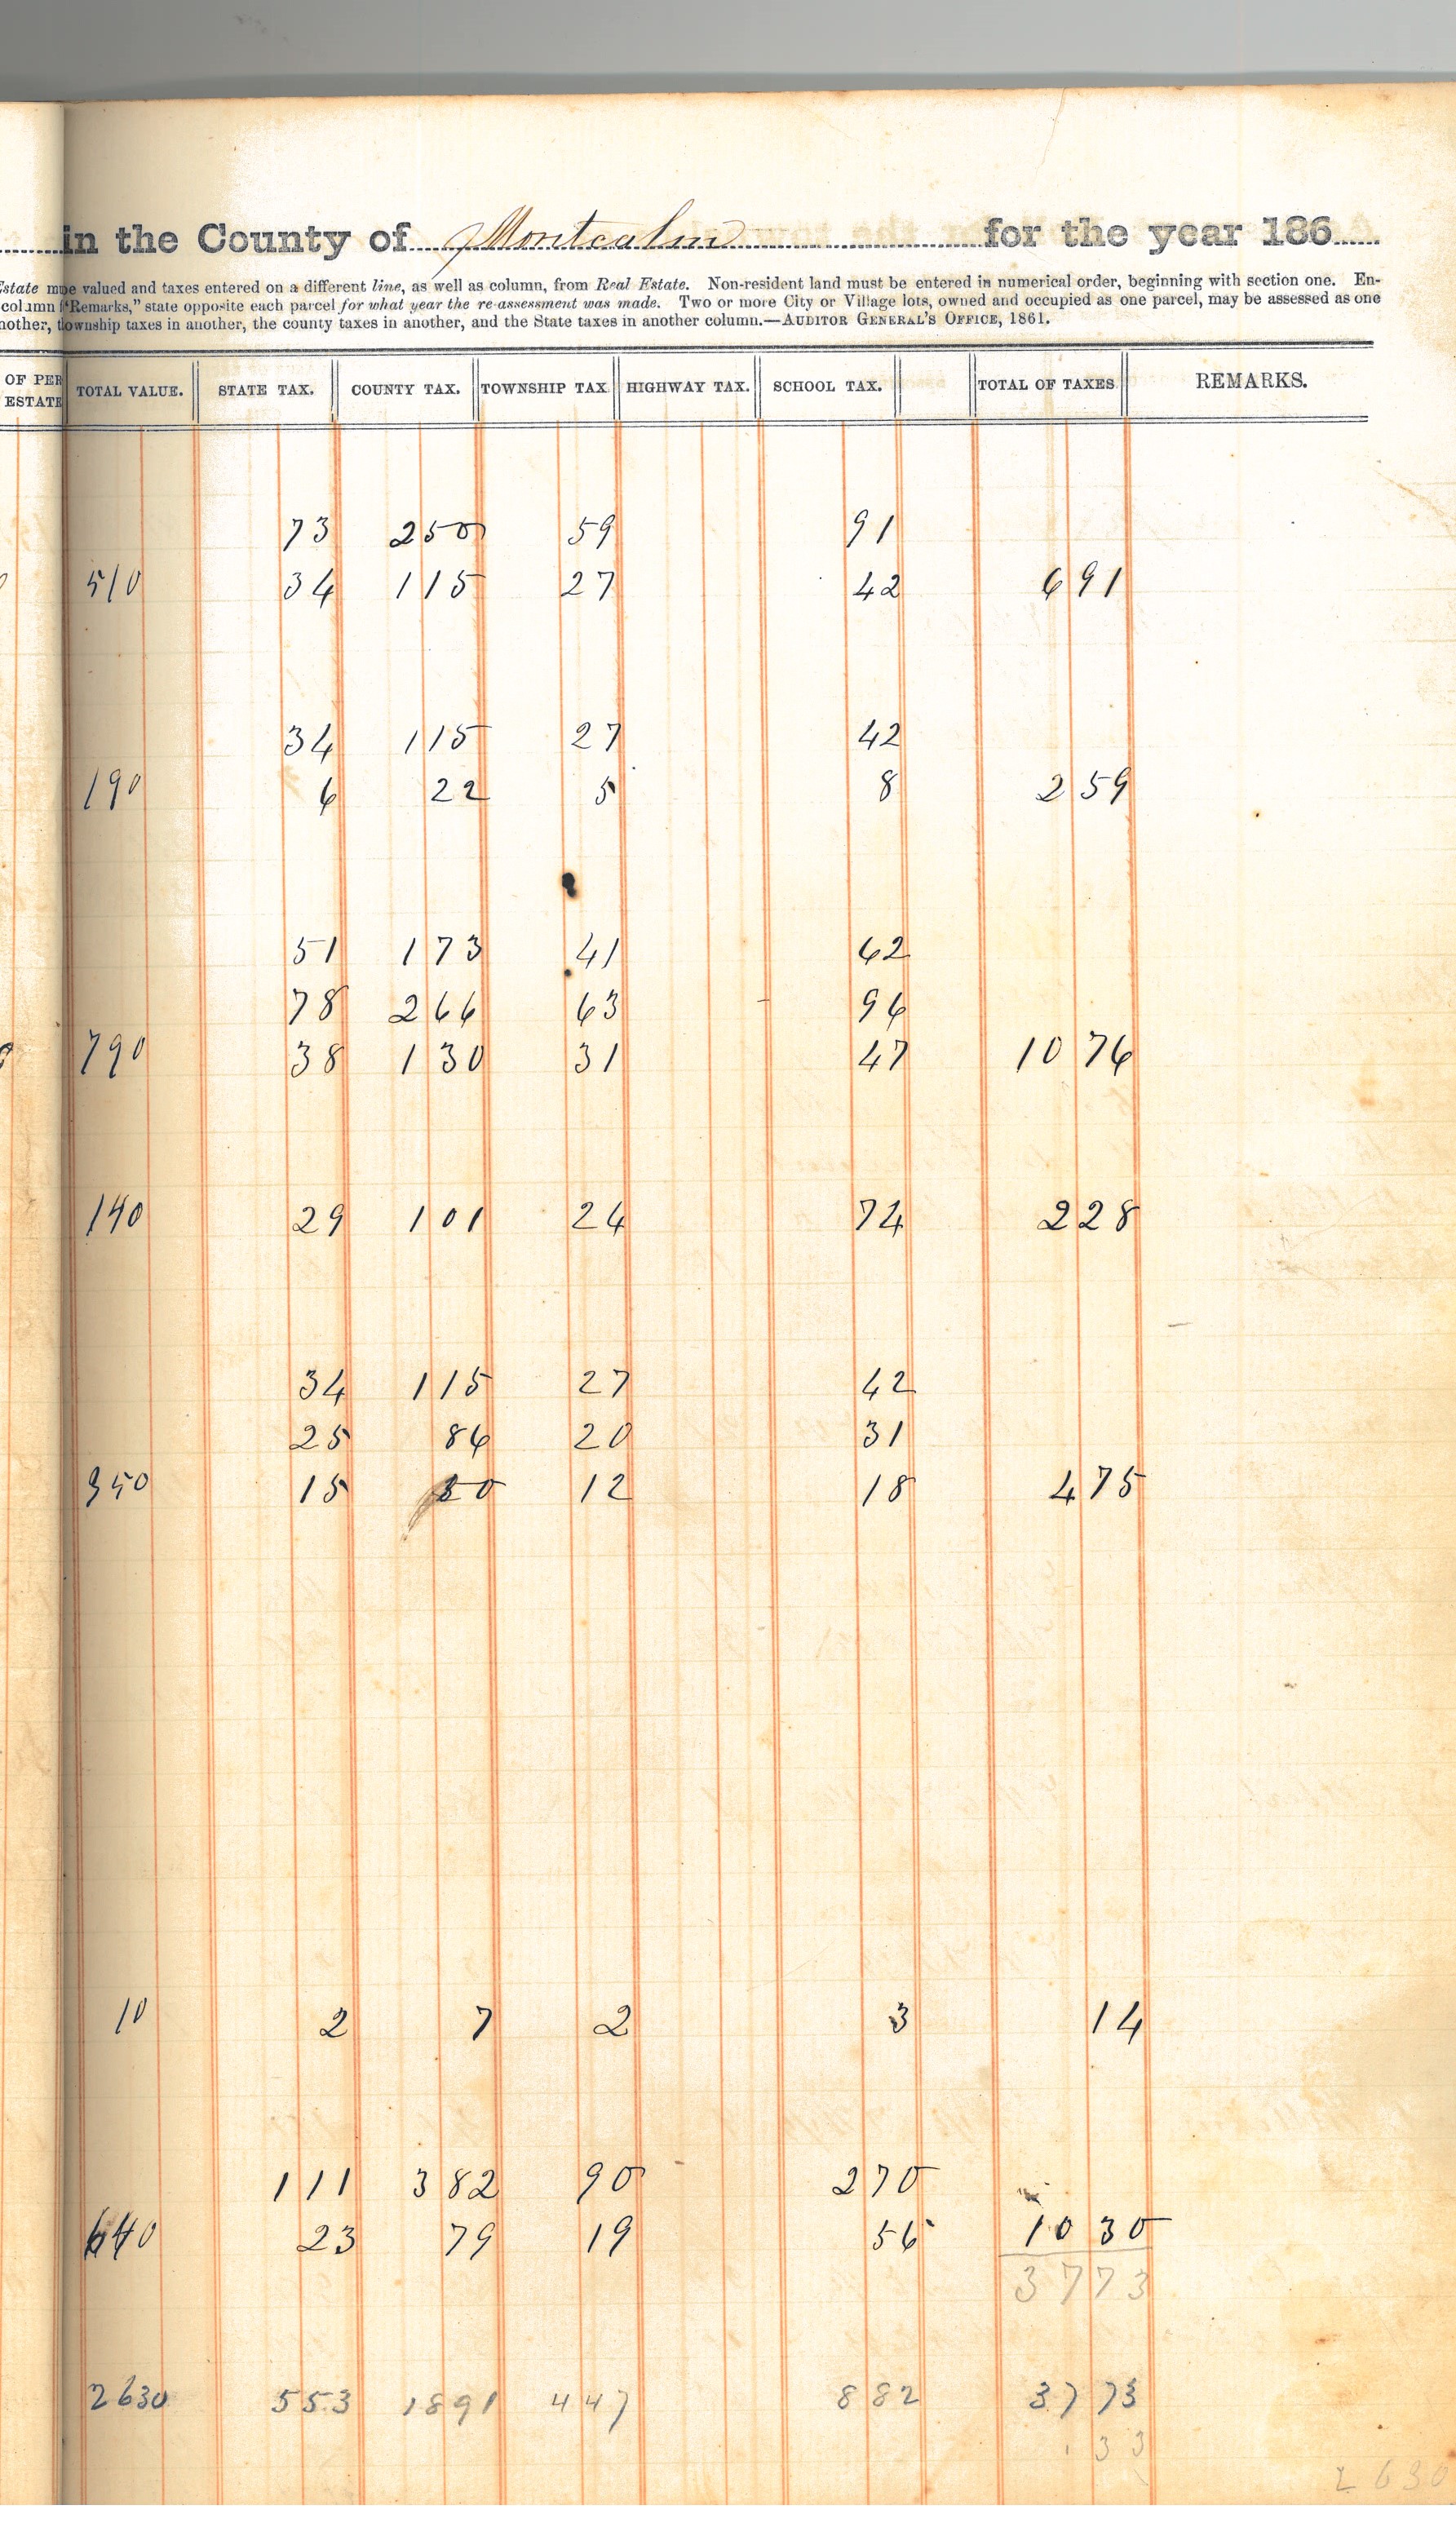 in the County of Montcalm for the year 186
Estate mu e valued and taxes entered on a different line, as well as column, from Real Estate. Non-resident land must be entered in numerical order, beginning with section one. En-
column "Remarks," state opposite each parcel for what year the re-assessment was made. Two or more City or Village lots, owned and occupied as one parcel, may be assessed as one
nother, township taxes in another, the county taxes in another, and the State taxes in another column.—AUDITOR GENERAL'S OFFICE, 1861.
OF PER ESTATE TOTAL VALUE. STATE TAX. COUNTY TAX. TOWNSHIP TAX HIGHWAY TAX. SCHOOL TAX. TOTAL OF TAXES REMARKS.
73 2 50 59 91
510 34 1 15 27 42 6 91
34 1 15 27 42
190 6 22 5 8 2 59
51 1 73 41 62
78 2 66 63 96
790 38 1 30 31 47 10 76
140 29 1 01 24 74 2 28
34 1 15 27 42
25 86 20 31
350 15 50 12 18 4 75
10 2 7 2 3 14
1 11 3 82 90 2 70
640 23 79 19 56 10 30
37 73
2630 5 53 18 91 4 47 8 82 37 73
33
2630